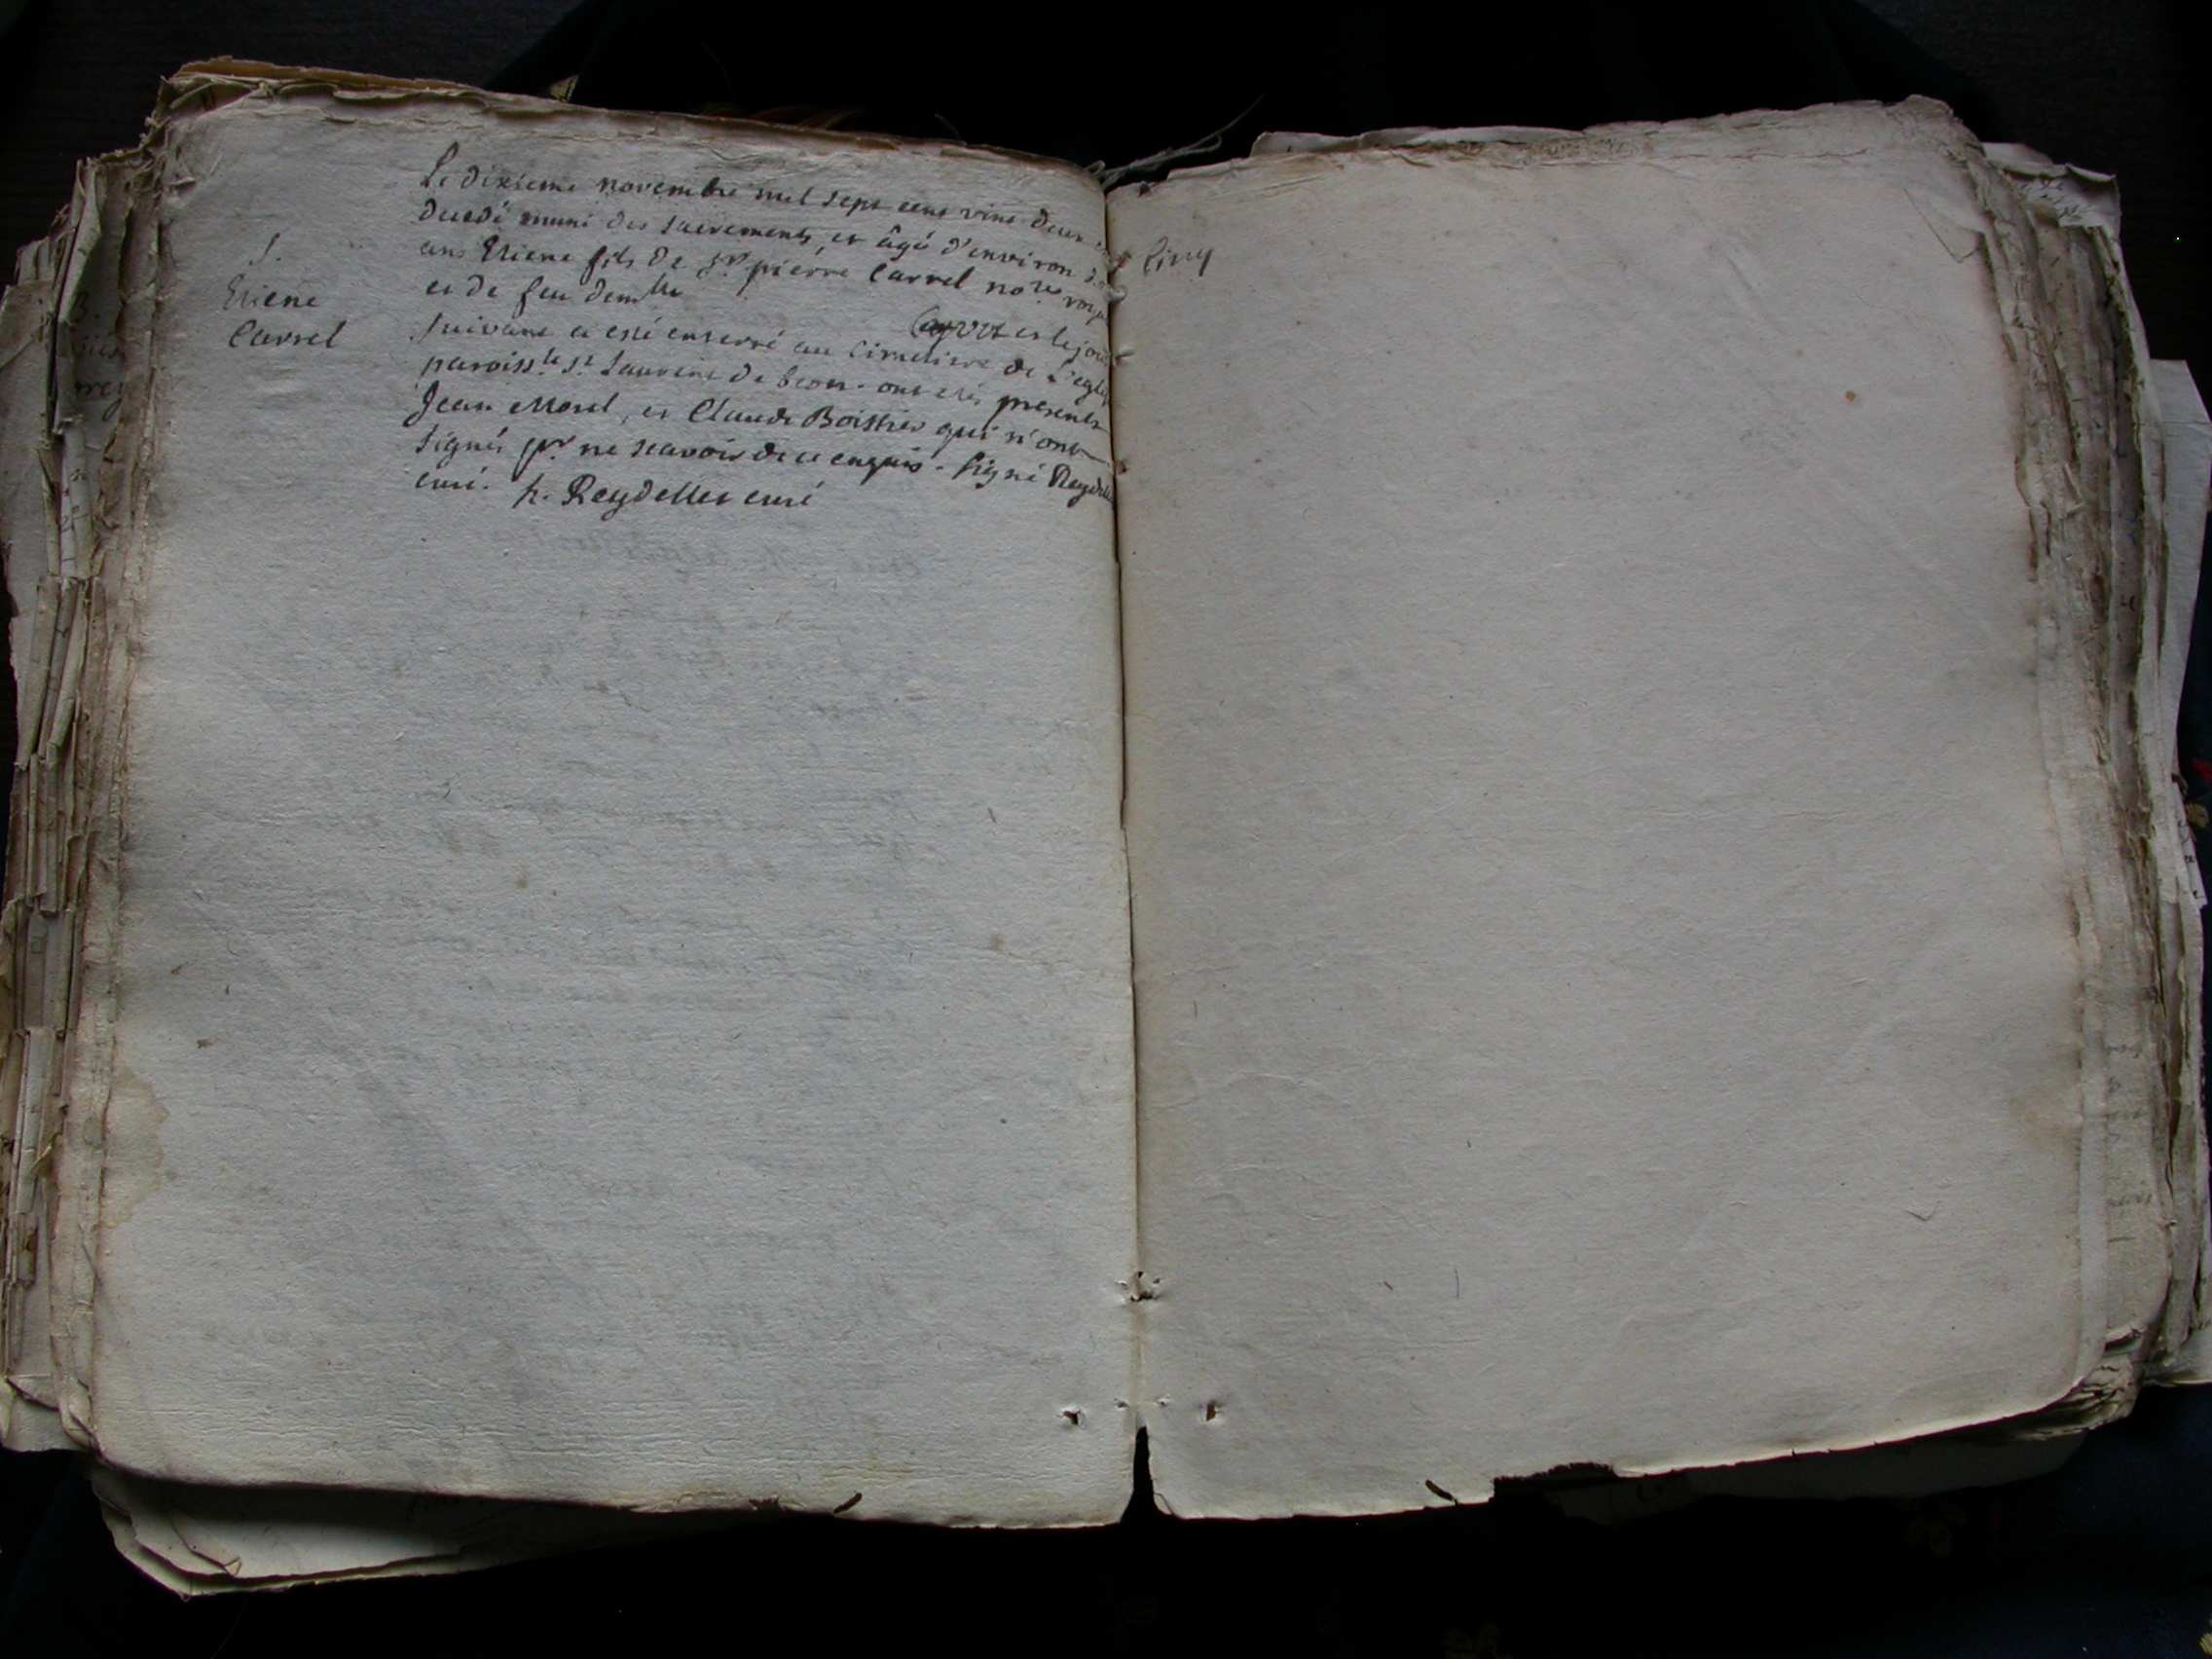 S.
Etiene
Carrel
Le dixieme novembre mil sept cent vint deux est
decedé muni des sacrements, et âgé d'environ
ans Etiene fils de Sr. pierre Carrel nore. royal
et de feu demlle
Cayot et le jour
suivant a esté enterré au cimetiere de L'eglise
paroissle. St. Laurent de beon. ont etés presents
Jean Morel, et Claude Boissier qui n'ont
signés pr. ne scavoir de ce enquis. Signé Reydellet
curé. h. Reydellet curé
cinq